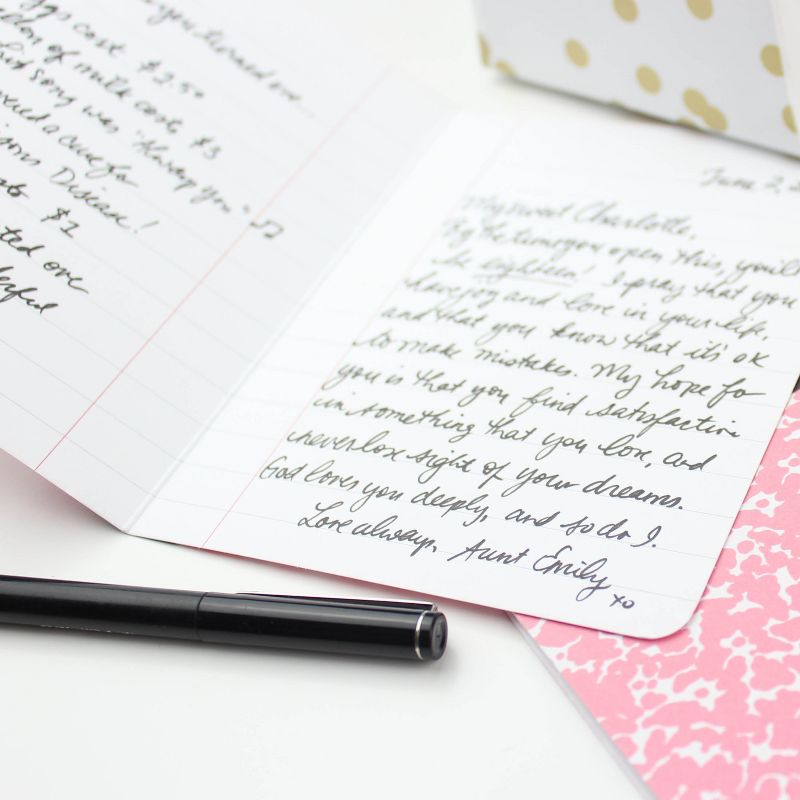 you turned one...
eggs cost $2.50
of milk costs $3
song was "Always You" ♫
a cure for
Disease!
$1
ted over
derful
June 2,
My sweet Charlotte,
By the time you open this, you'll
be eighteen! I pray that you
have joy and love in your life,
and that you know that it's ok
to make mistakes. My hope for
you is that you find satisfaction
in something that you love, and
never lose sight of your dreams.
God loves you deeply, and so do I.
Love always, Aunt Emily
xo